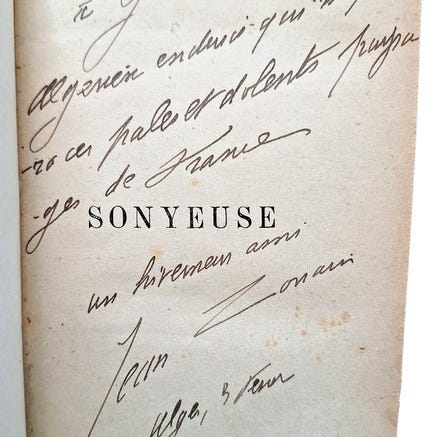 à
Algérien endurci qui
-ra ces pales et dolents paysa
-ges de France
SONYEUSE
un hiverneur ami
Jean Lorrain
Alger, 3